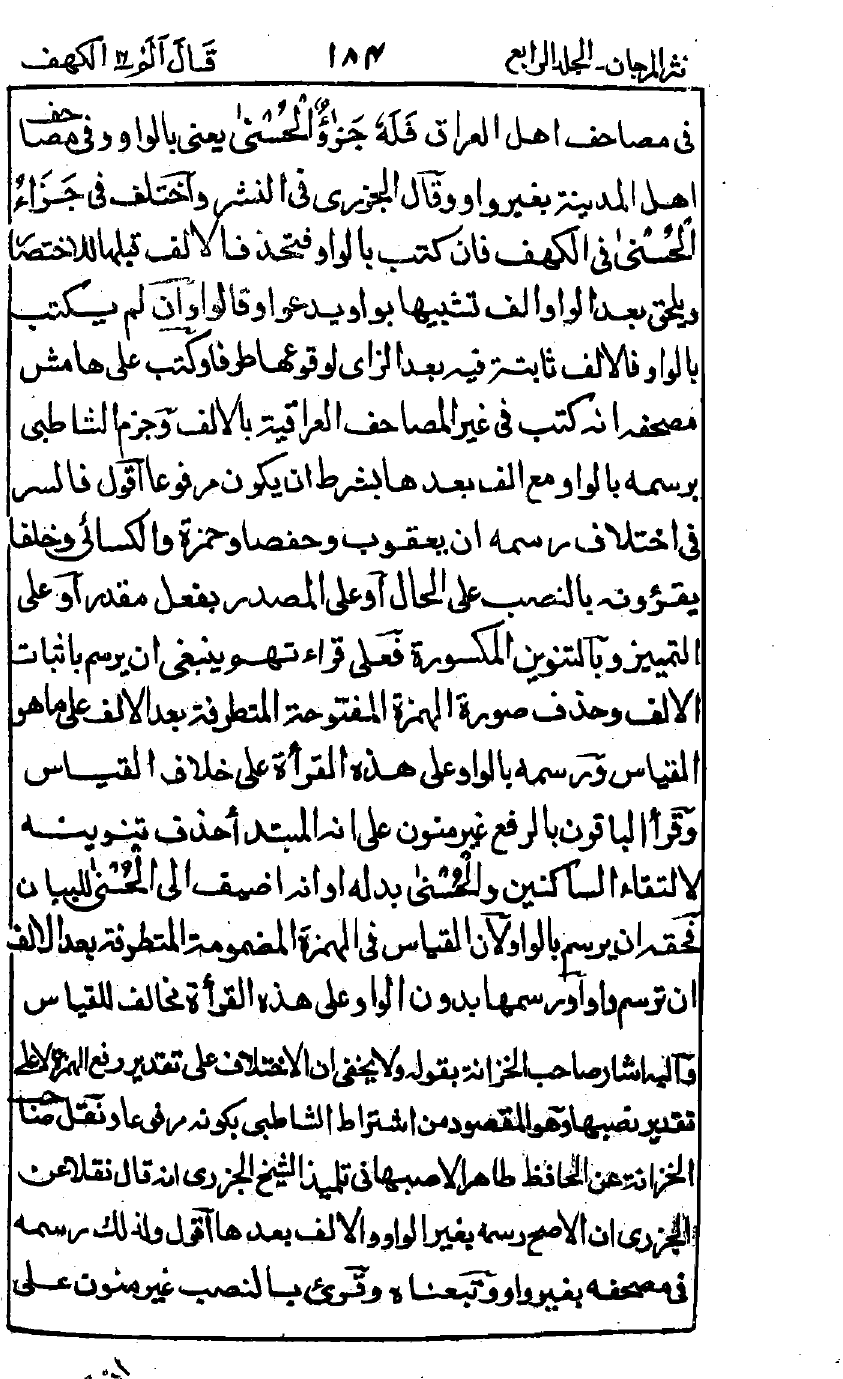 نثر المرجان۔ الجلد الرابع ١٨٤ قَالَ آلَمْ ١٦ الكهف
فى مصاحف اهل العراق فَلَهٗ جَزٰٓؤُا اۨلْحُسْنٰى يعنى بالواو وفى مصاحف
اهل المدينة بغير واو وقال الجزرى فى النشر واختلف فى جَزَاءُ
الْحُسْنٰى فى الكهف فان كتب بالواو فتحذف الالف قبلها للاختصا
ويلحق بعد الواو الف تشبيها بواو يدعوا وقالوا وان لم يكتب
بالواو فالالف ثابتة فيه بعد الزاى لوقوعها طرفا وكتب على هامش
مصحفه انه كتب فى غير المصاحف العراقية بالالف وجزم الشاطبى
برسمه بالواو مع الف بعدها بشرط ان يكون مرفوعا اقول فالسر
فى اختلاف رسمه ان يعقوب وحفصا وحمزة والكسائى وخلفا
يقرؤنه بالنصب على الحال أو على المصدر بفعل مقدر أو على
التمييز وبالتنوين المكسورة فعلى قراءتهم ينبغى ان يرسم باثبات
الالف وحذف صورة الهمزة المفتوحة المتطرفة بعد الالف على ما هو
القياس ورسمه بالواو على هذه القرأة على خلاف القياس
وقرأ الباقون بالرفع غير منون على انه المبتدأ حذف تنوينه
لالتقاء الساكنين والْحُسْنٰى بدله او انه اضيف الى الْحُسْنٰى للبيان
فحقه ان يرسم بالواو لان القياس فى الهمزة المضمومة المتطرفة بعد الالف
ان ترسم واوا ورسمها بدون الواو على هذه القرأة مخالف للقياس
واليه اشار صاحب الخزانة بقوله ولا يخفى ان الاختلاف على تقدير رفع الهمزة لا على
تقدير نصبها وهو المقصود من اشتراط الشاطبى بكونه مرفوعا ونقل صاحب
الخزانة عن الحافظ طاهر الاصبهانى تلميذ الشيخ الجزرى انه قال نقلا عن
الجزرى ان الاصح رسمه بغير الواو والالف بعدها اقول ولذلك رسمه
فى مصحفه بغير واو وتبعناه وقرئ بالنصب غير منون على